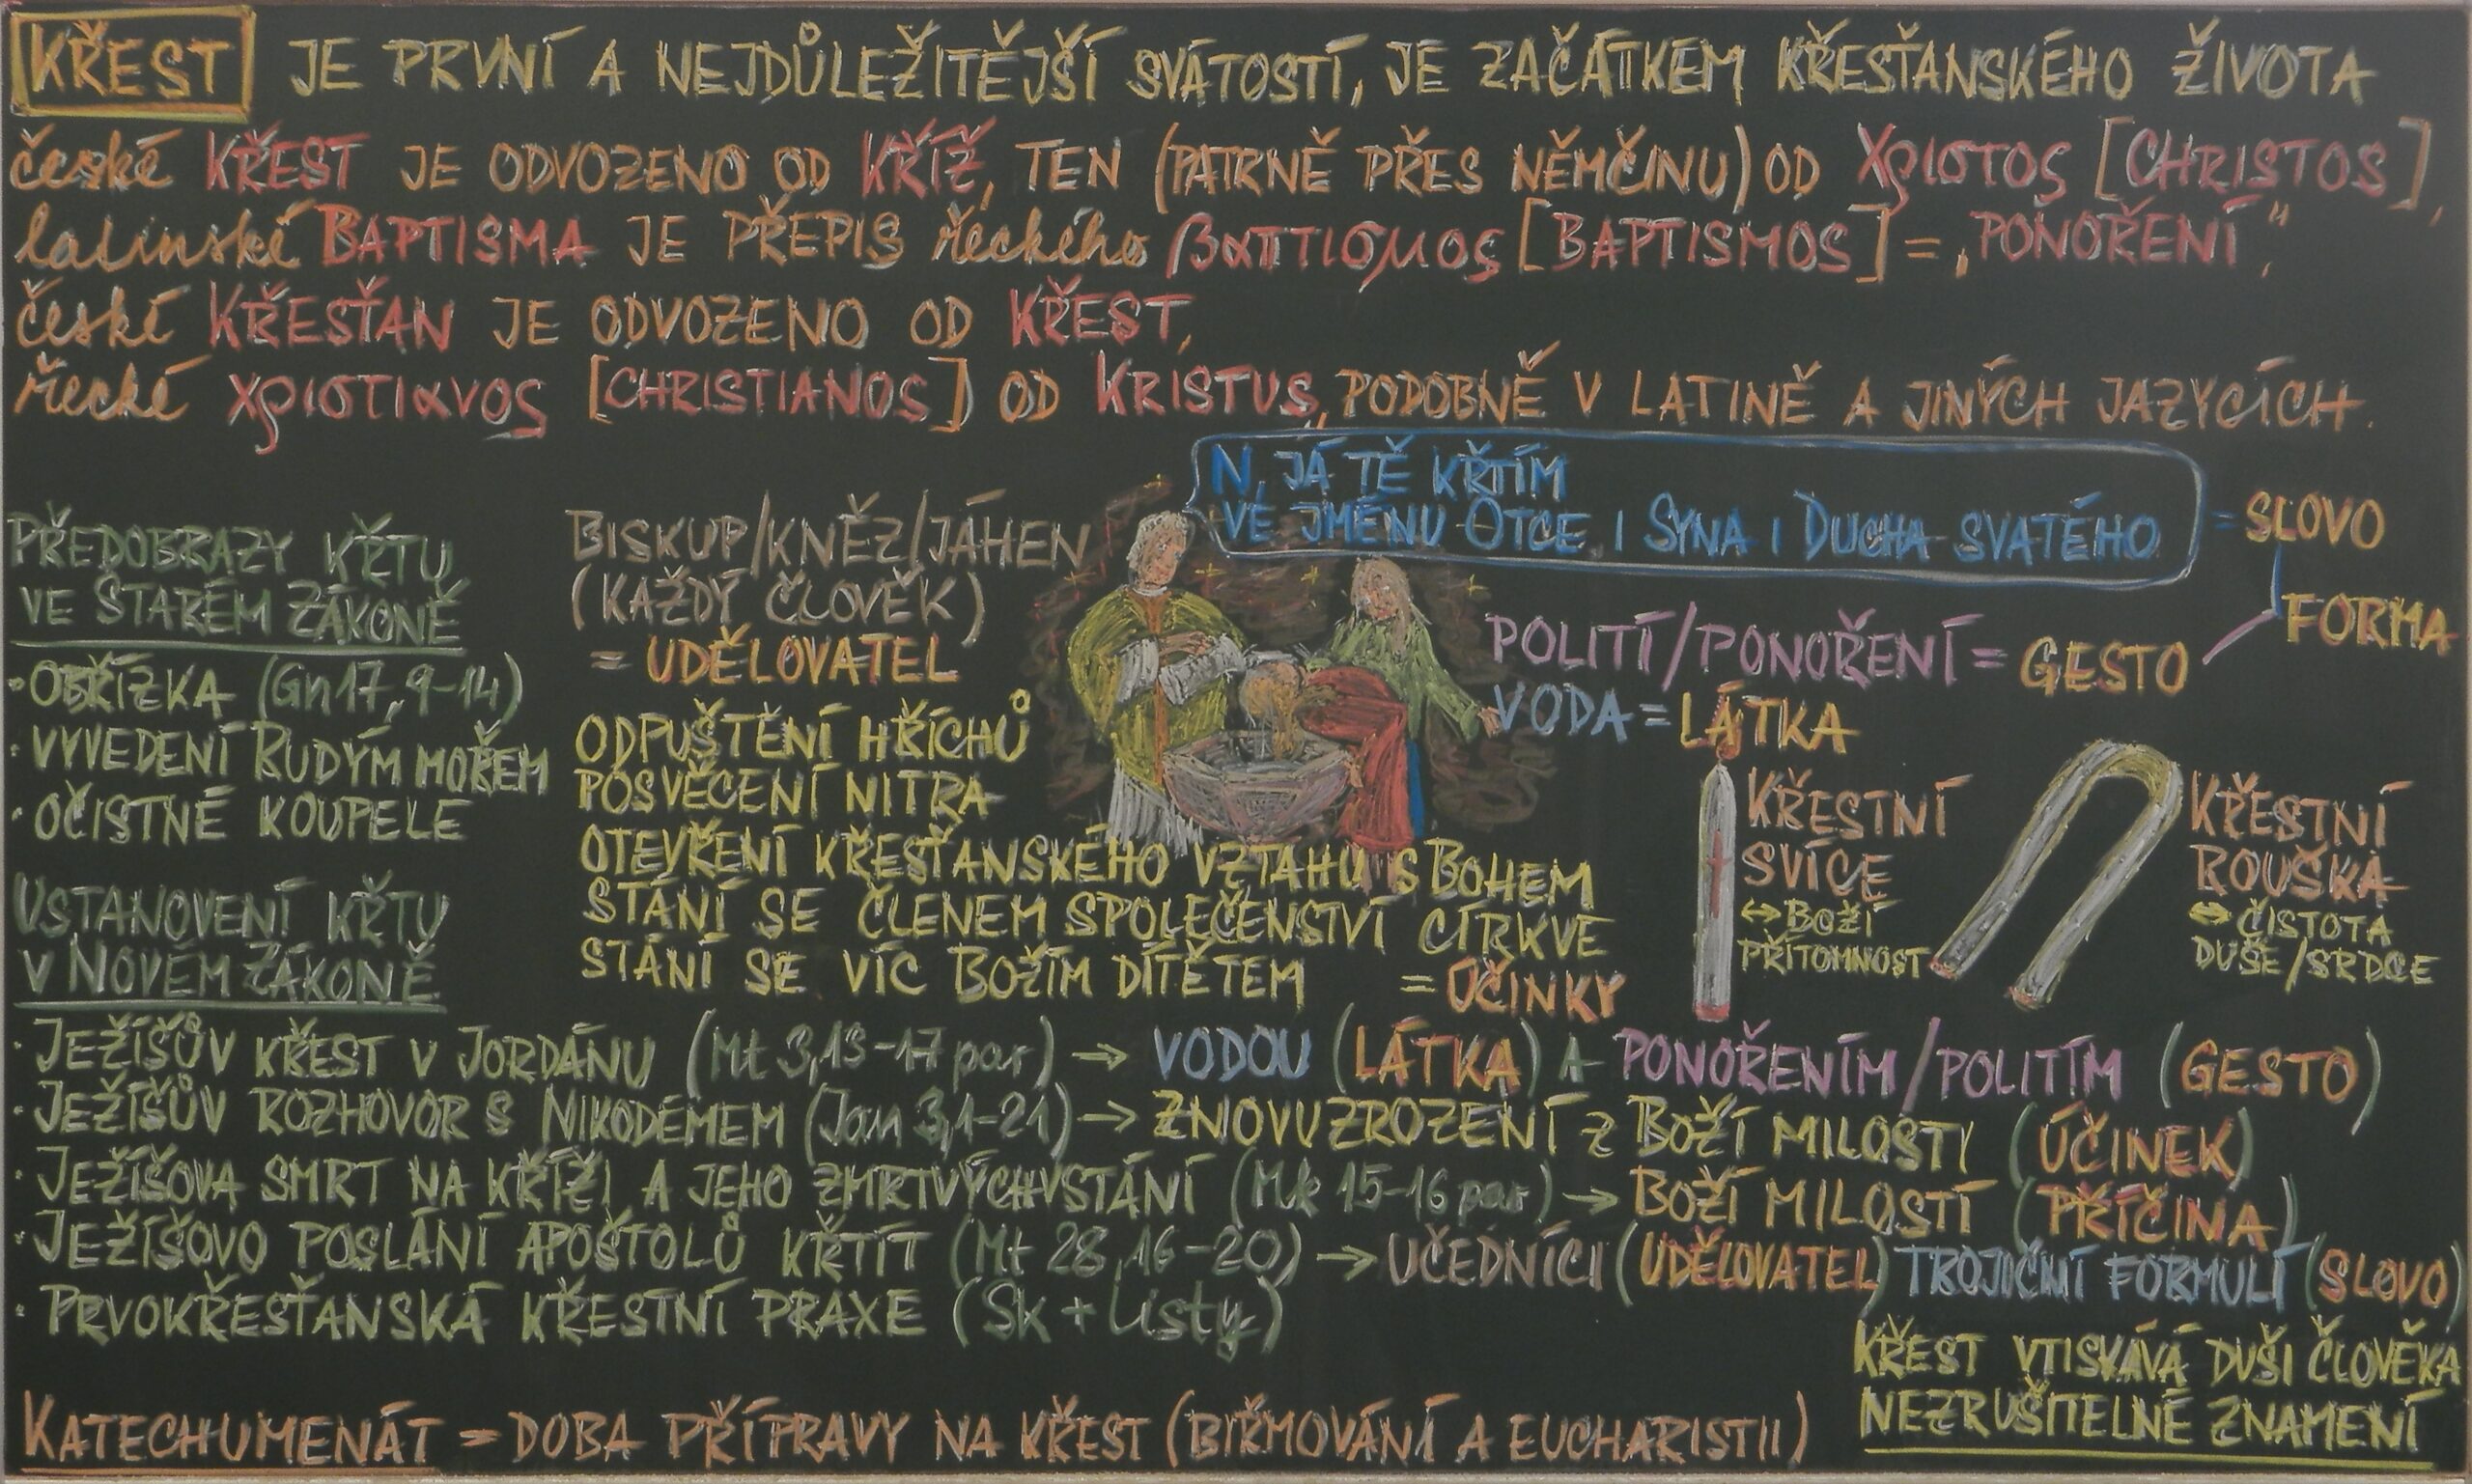 KŘEST JE PRVNÍ A NEJDŮLEŽITĚJŠÍ SVÁTOSTÍ, JE ZAČÁTKEM KŘESŤANSKÉHO ŽIVOTA
české KŘEST JE ODVOZENO OD KŘÍŽ, TEN (PATRNĚ PŘES NĚMČINU) OD Χριστος [CHRISTOS],
latinské BAPTISMA JE PŘEPIS řeckého βαπτισμος [BAPTISMOS] = „PONOŘENÍ“,
české KŘESŤAN JE ODVOZENO OD KŘEST,
řecké χριστιανος [CHRISTIANOS] OD KRISTUS, PODOBNĚ V LATINĚ A JINÝCH JAZYCÍCH.
N, JÁ TĚ KŘTÍM
VE JMÉNU OTCE I SYNA I DUCHA SVATÉHO
= SLOVO
FORMA
POLITÍ/PONOŘENÍ = GESTO
VODA = LÁTKA
PŘEDOBRAZY KŘTU
VE STARÉM ZÁKONĚ
• OBŘÍZKA (Gn 17, 9-14)
• VYVEDENÍ RUDÝM MOŘEM
• OČISTNÉ KOUPELE
BISKUP/KNĚZ/JÁHEN
(KAŽDÝ ČLOVĚK)
= UDĚLOVATEL
ODPUŠTĚNÍ HŘÍCHŮ
POSVĚCENÍ NITRA
OTEVŘENÍ KŘESŤANSKÉHO VZTAHU S BOHEM
STÁNÍ SE ČLENEM SPOLEČENSTVÍ CÍRKVE
STÁNÍ SE VÍC BOŽÍM DÍTĚTEM = ÚČINKY
KŘESTNÍ
SVÍCE
↔ BOŽÍ
PŘÍTOMNOST
KŘESTNÍ
ROUŠKA
↔ ČISTOTA
DUŠE/SRDCE
USTANOVENÍ KŘTU
V NOVÉM ZÁKONĚ
• JEŽÍŠŮV KŘEST V JORDÁNU (Mt 3,13-17 par) → VODOU (LÁTKA) A PONOŘENÍM/POLITÍM (GESTO)
• JEŽÍŠŮV ROZHOVOR S NIKODÉMEM (Jan 3,1-21) → ZNOVUZROZENÍ Z BOŽÍ MILOSTI (ÚČINEK)
• JEŽÍŠOVA SMRT NA KŘÍŽI A JEHO ZMRTVÝCHVSTÁNÍ (Mk 15-16 par) → BOŽÍ MILOSTÍ (PŘÍČINA)
• JEŽÍŠOVO POSLÁNÍ APOŠTOLŮ KŘTÍT (Mt 28,16-20) → UČEDNÍCI (UDĚLOVATEL) TROJIČNÍ FORMULÍ (SLOVO)
• PRVOKŘESŤANSKÁ KŘESTNÍ PRAXE (Sk + Listy)
KŘEST VTISKÁVÁ DUŠI ČLOVĚKA
NEZRUŠITELNÉ ZNAMENÍ
KATECHUMENÁT = DOBA PŘÍPRAVY NA KŘEST (BIŘMOVÁNÍ A EUCHARISTII)